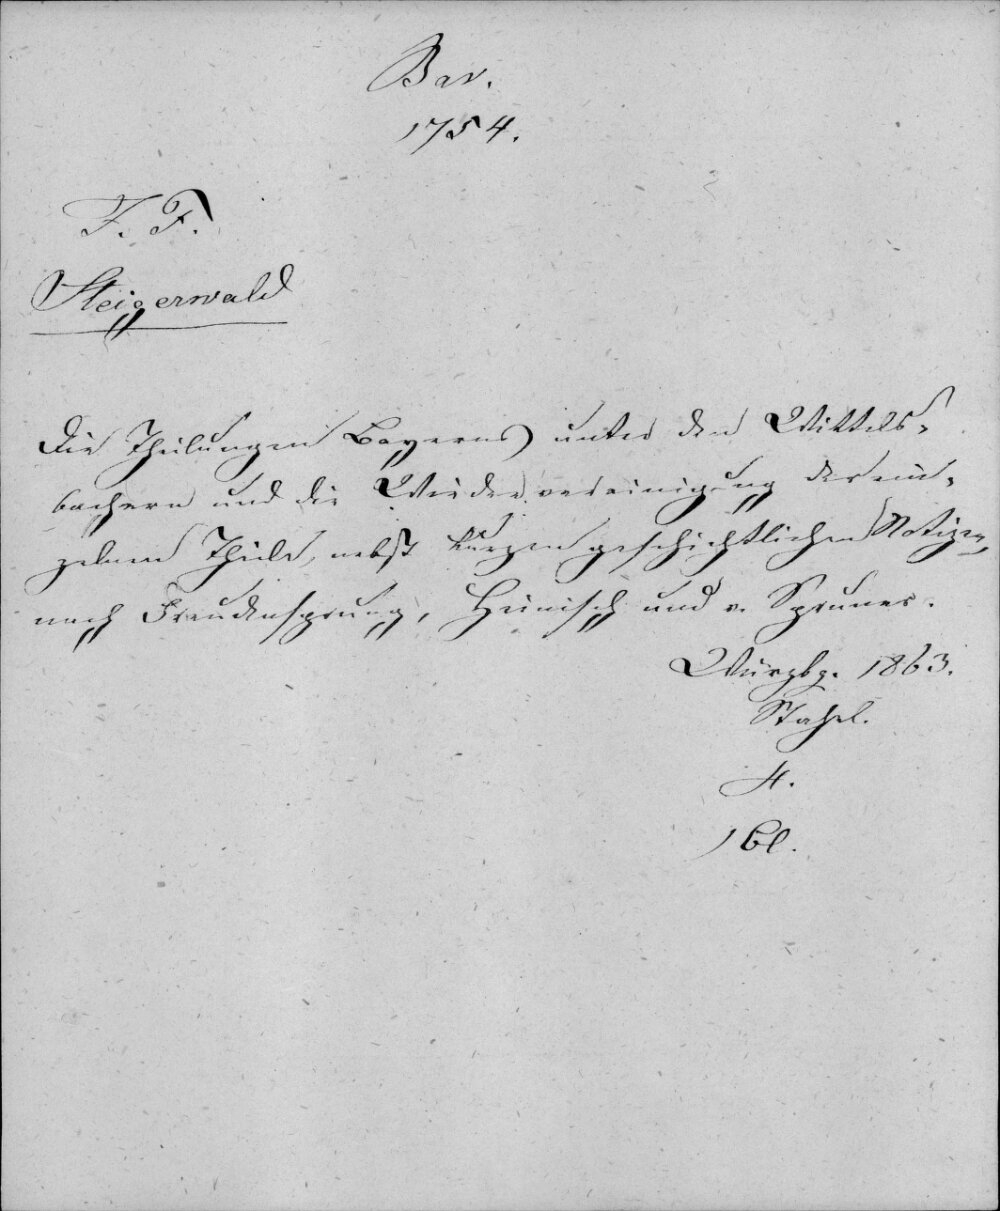 Bav.
1754.
F. F.
Steigerwald
Die Theilungen Bayerns unter den Wittels-
bachern und die Wiedervereinigung der ein-
zelnen Theile, nebst kurzen geschichtlichen Notizen,
nach Freudensprung, Heinisch und v. Spruner.
Würzbg. 1863.
Stahel.
4.
1 Bl.